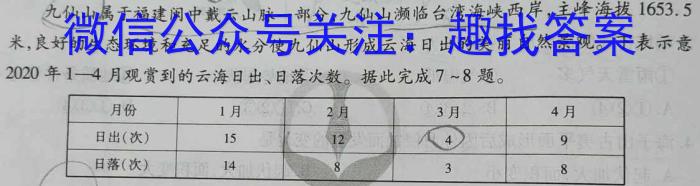 九仙山属于福建闽中戴云山脉一部分,九仙山濒临台湾海峡西岸,主峰海拔1653.5
米,良好的生态环境和充足的水分使九仙山形成云海日出的美丽自然景观。下表示意
微信公众号关注:趣找答案
2020年1—4月观赏到的云海日出、日落次数。据此完成7~8题。
月份 1月 2月 3月 4月
日出(次) 15 12 4 9
日落(次) 14 8 3 8